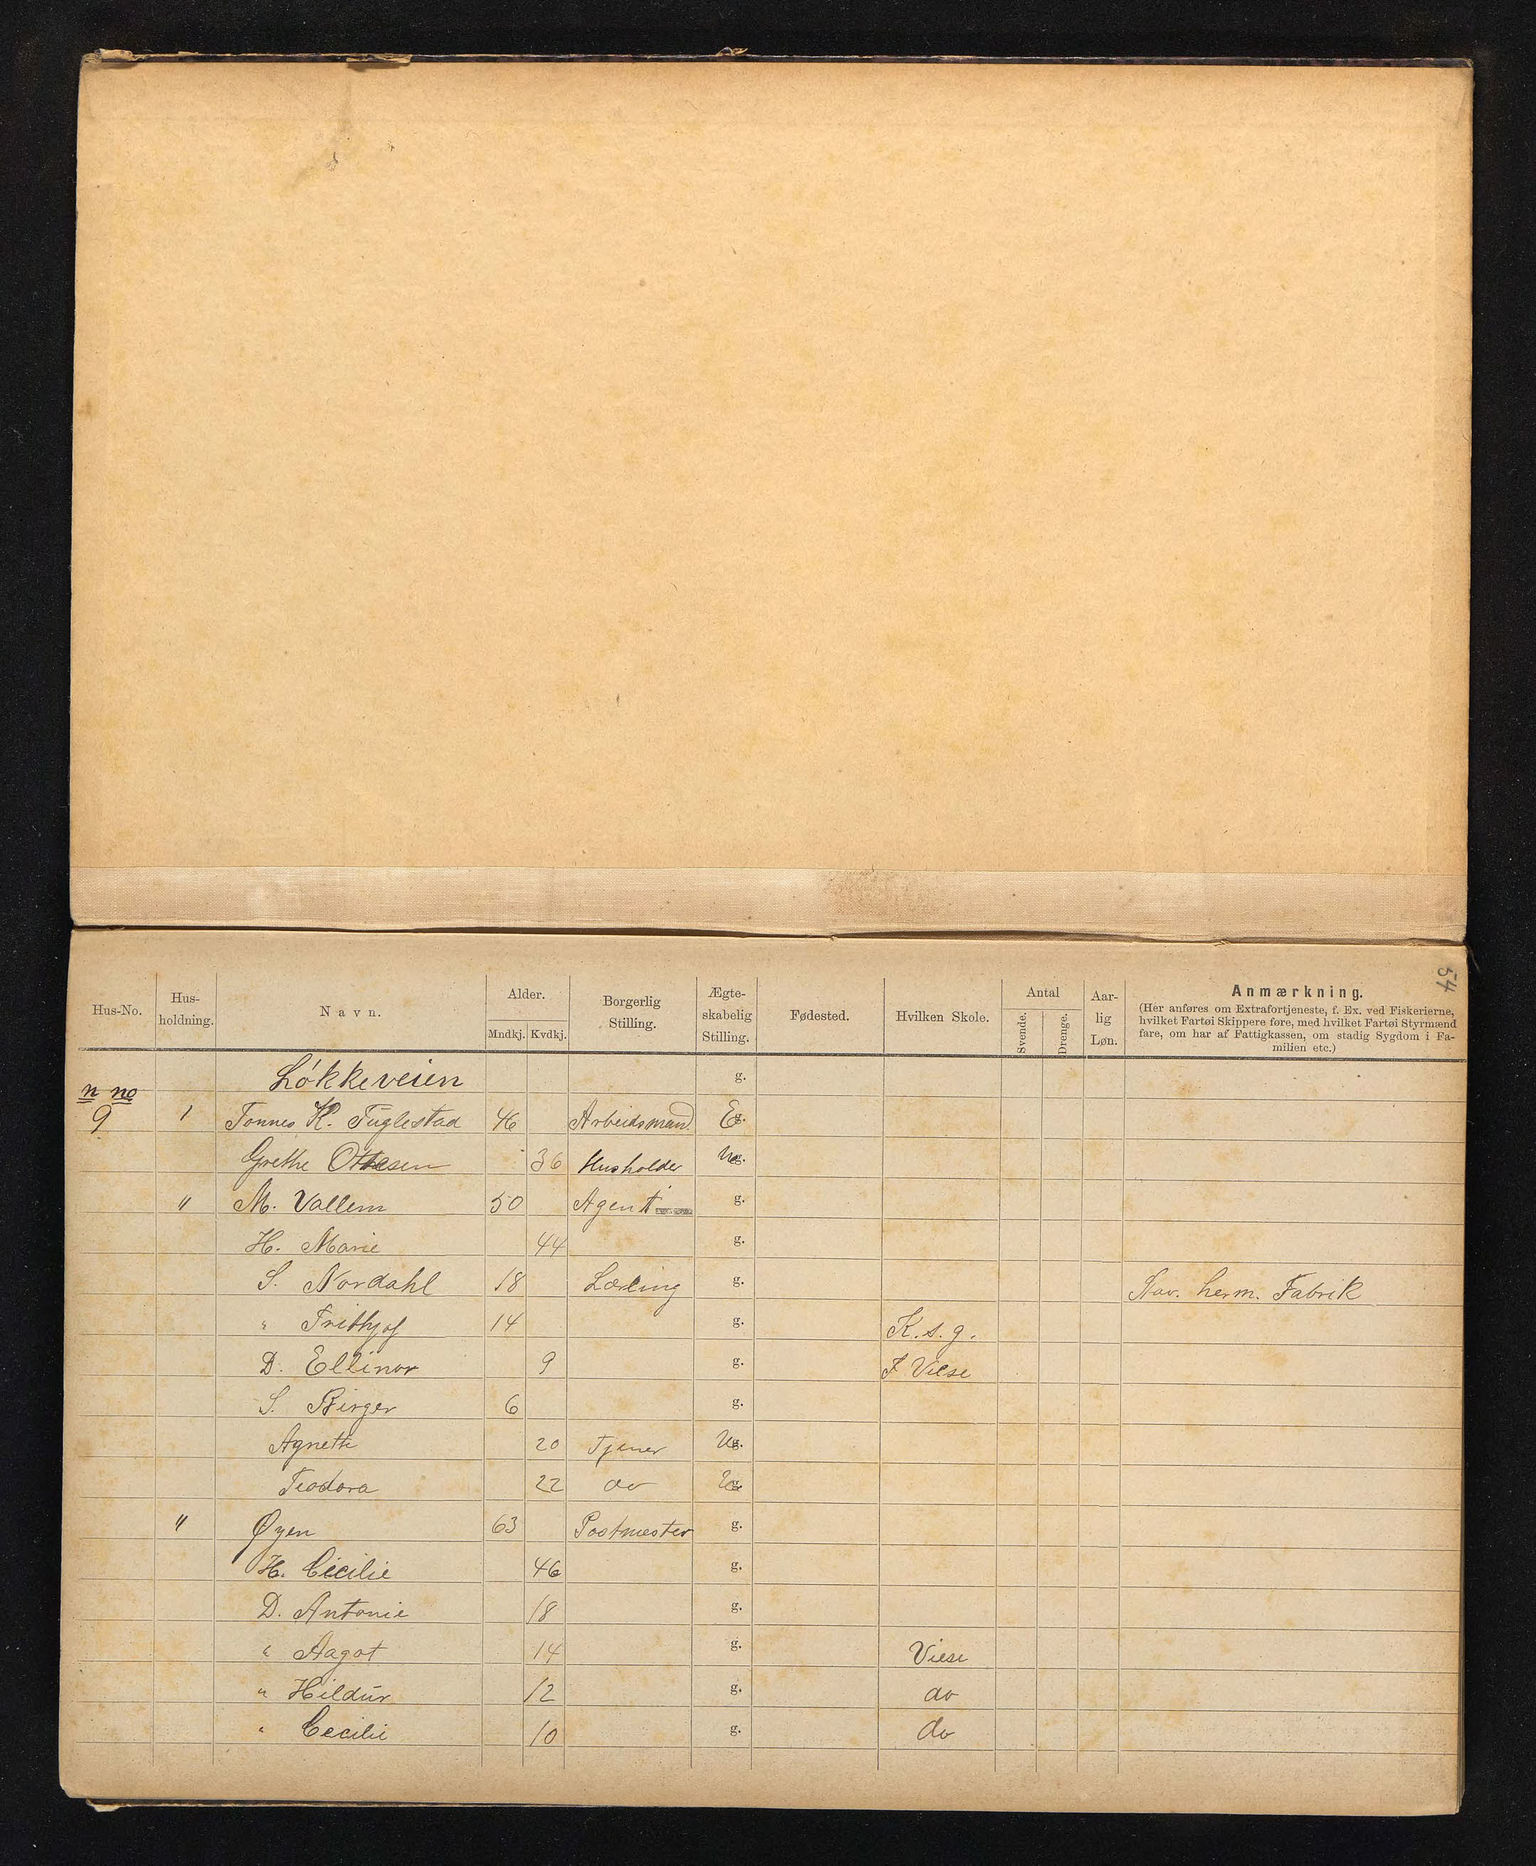 54
Hus-No. Hus-holdning. Navn. Alder. Mndkj. Kvdkj. Borgerlig Stilling. Ægte-skabelig Stilling. Fødested. Hvilken Skole. Antal Svende. Drenge. Aar-lig Løn. Anmærkning.
(Her anføres om Extrafortjeneste, f. Ex. ved Fiskerierne,
hvilket Fartøi Skippere føre, med hvilket Fartøi Styrmænd
fare, om har af Fattigkassen, om stadig Sygdom i Fa-
milien etc.)
Løkkeveien g.
n no
9 1 Tønnes K. Fuglestad 46 Arbeidsmand E g.
Grethe Ottesen 36 Husholder U g.
" M. Vallem 50 Agent g.
H. Marie 44 g.
S. Nordahl 18 Lærling g. Stav. herm. Fabrik
" Frithjof 14 g. K. s. g.
D. Ellinor 9 g. F Viese
S. Birger 6 g.
Agnethe 20 Tjener U g.
Teodora 22 do U g.
" Øyen 63 Postmester g.
H. Cecilie 46 g.
D. Antonie 18 g.
" Aagot 14 g. Viese
" Hildur 12 g. do
" Cecilie 10 g. do